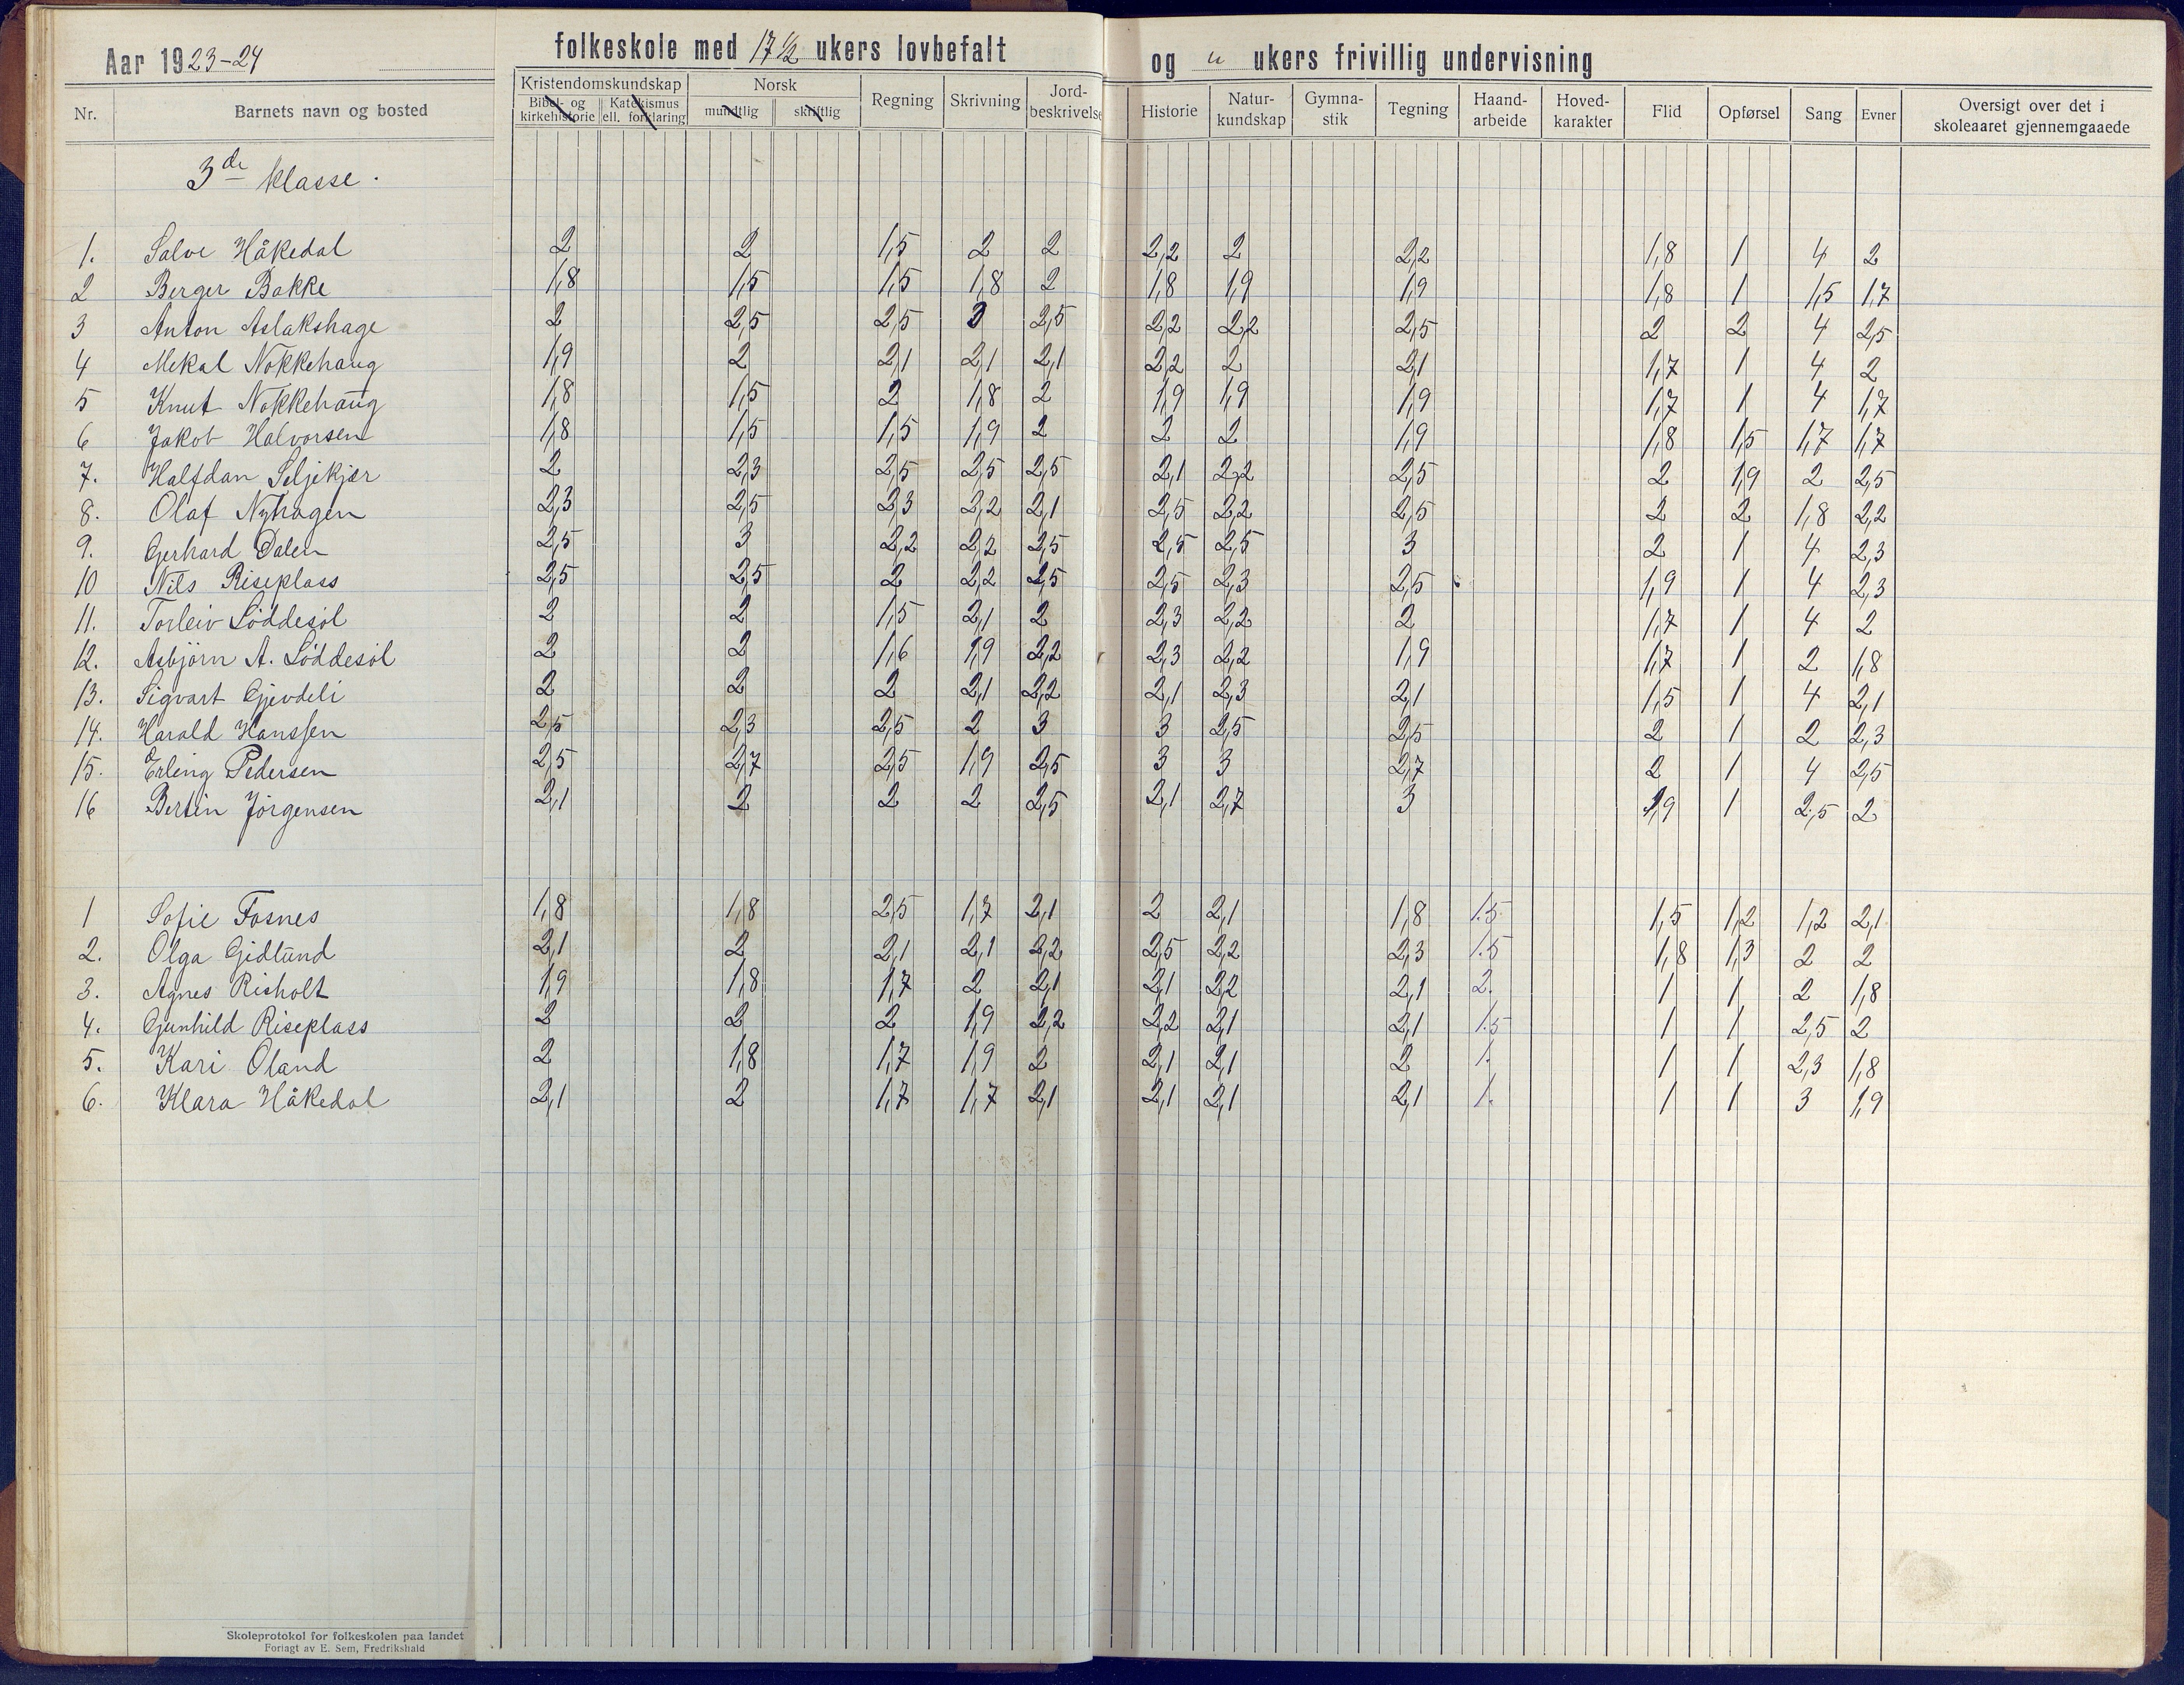 Aar 1923-24 folkeskole med 17 1/2 ukers lovbefalt og " ukers frivillig undervisning
Nr. Barnets navn og bosted Kristendomskundskap Bibel- og kirkehistorie Katekismus ell. forklaring Norsk mundtlig skriftlig Regning Skrivning Jord-beskrivelse Historie Natur-kundskap Gymna-stik Tegning Haand-arbeide Hoved-karakter Flid Opførsel Sang Evner Oversigt over det i skoleaaret gjennemgaaede
3de klasse.
1. Salve Håkedal 2 2 1,5 2 2 2,2 2 2,2 1,8 1 4 2
2 Berger Bakke 1,8 1,5 1,5 1,8 2 1,8 1,9 1,9 1,8 1 1,5 1,7
3 Anton Aslakshage 2 2,5 2,5 2,5 2,2 2,2 2,5 2 2 4 2,5
4 Mekal Nokkehaug 1,9 2 2,1 2,1 2,1 2,2 2 2,1 1,7 1 4 2
5 Knut Nokkehaug 1,8 1,5 2 1,8 2 1,9 1,9 1,9 1,7 1 4 1,7
6 Jakob Halvorsen 1,8 1,5 1,5 1,9 2 2 2 1,9 1,8 1,5 1,7 1,7
7. Halfdan Seljekjær 2 2,3 2,5 2,5 2,5 2,1 2,2 2,5 2 1,9 2 2,5
8. Olaf Nyhagen 2,3 2,5 2,3 2,2 2,1 2,5 2,2 2,5 2 2 1,8 2,2
9. Gerhard Dalen 2,5 3 2,2 2,2 2,5 2,5 2,5 3 2 1 4 2,3
10 Nils Riseplass 2,5 2,5 2 2,2 2,5 2,5 2,3 2,5 1,9 1 4 2,3
11. Torleiv Löddesöl 2 2 1,5 2,1 2 2,3 2,2 2 1,7 1 4 2
12. Asbjörn A. Löddesöl 2 2 1,6 1,9 2,2 2,3 2,2 1,9 1,7 1 2 1,8
13. Sigvart Gjevdeli 2 2 2 2,1 2,2 2,1 2,3 2,1 1,5 1 4 2,1
14. Harald Hanssen 2,5 2,3 2,5 2 3 3 2,5 2,5 2 1 2 2,3
15. Erling Pedersen 2,5 2,7 2,5 1,9 2,5 3 3 2,7 2 1 4 2,5
16 Bertin Jörgensen 2,1 2 2 2 2,5 2,1 2,7 3 1,9 1 2,5 2
1 Sofie Fosnes 1,8 1,8 2,5 1,7 2,1 2 2,1 1,8 1.5 1,5 1,2 1,2 2,1
2. Olga Gidlund 2,1 2 2,1 2,1 2,2 2,5 2,2 2,3 1.5 1,8 1,3 2 2
3. Agnes Risholt 1,9 1,8 1,7 2 2,1 2,1 2,2 2,1 2. 1 1 2 1,8
4. Gunhild Riseplass 2 2 2 1,9 2,2 2,2 2,1 2,1 1.5 1 1 2,5 2
5. Kari Öland 2 1,8 1,7 1,9 2 2,1 2,1 2 1. 1 1 2,3 1,8
6. Klara Håkedal 2,1 2 1,7 1,7 2,1 2,1 2,1 2,1 1. 1 1 3 1,9
Skoleprotokol for folkeskolen paa landet
Forlagt av E. Sem, Fredrikshald